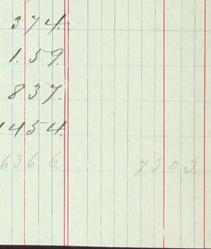 374.
1.59.
837.
1454.
636 6. 7303.